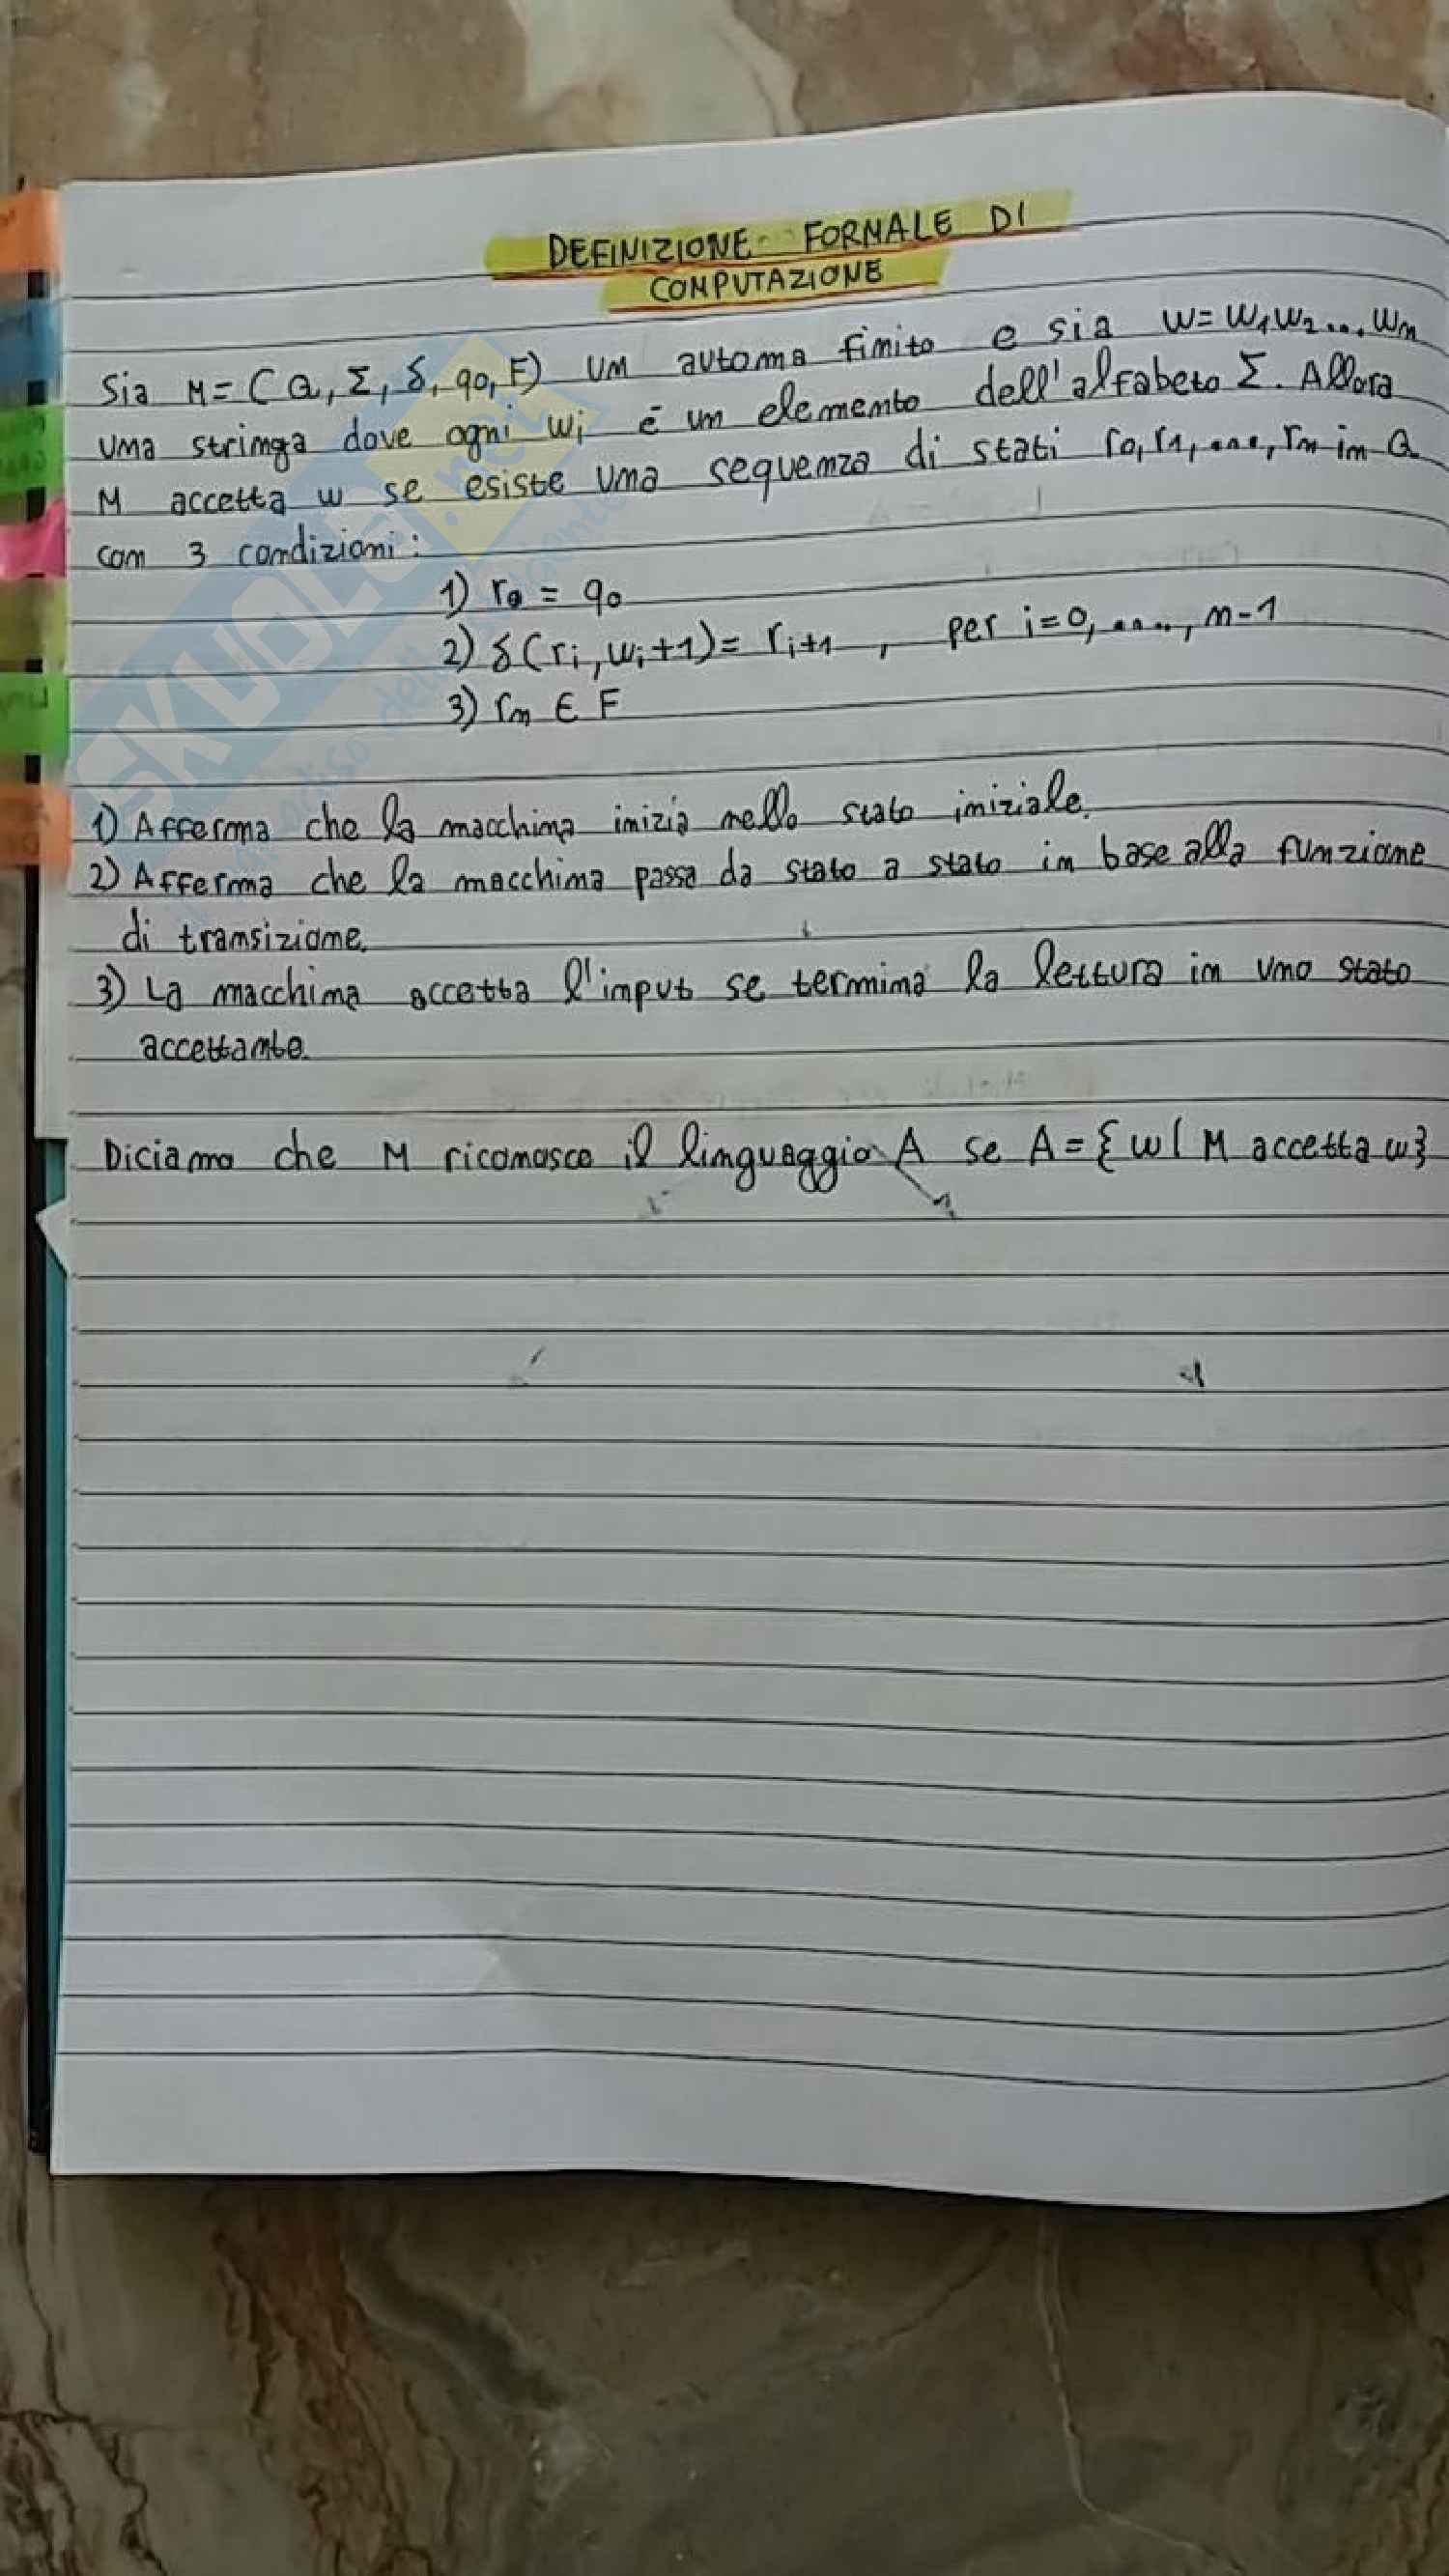 DEFINIZIONE FORMALE DI
COMPUTAZIONE
Sia M = (Q, Σ, δ, q0, F) un automa finito e sia w = w1w2..., wn
una stringa dove ogni wi è un elemento dell'alfabeto Σ. Allora
M accetta w se esiste una sequenza di stati r0, r1, ...., rn in Q
con 3 condizioni:
1) r0 = q0
2) δ(ri, wi+1) = ri+1 , per i=0, ....., n-1
3) rn ∈ F
1) Afferma che la macchina inizia nello stato iniziale.
2) Afferma che la macchina passa da stato a stato in base alla funzione
di transizione.
3) La macchina accetta l'input se termina la lettura in uno stato
accettante.
Diciamo che M riconosce il linguaggio A se A = {w| M accetta w}
SKUOLA.net